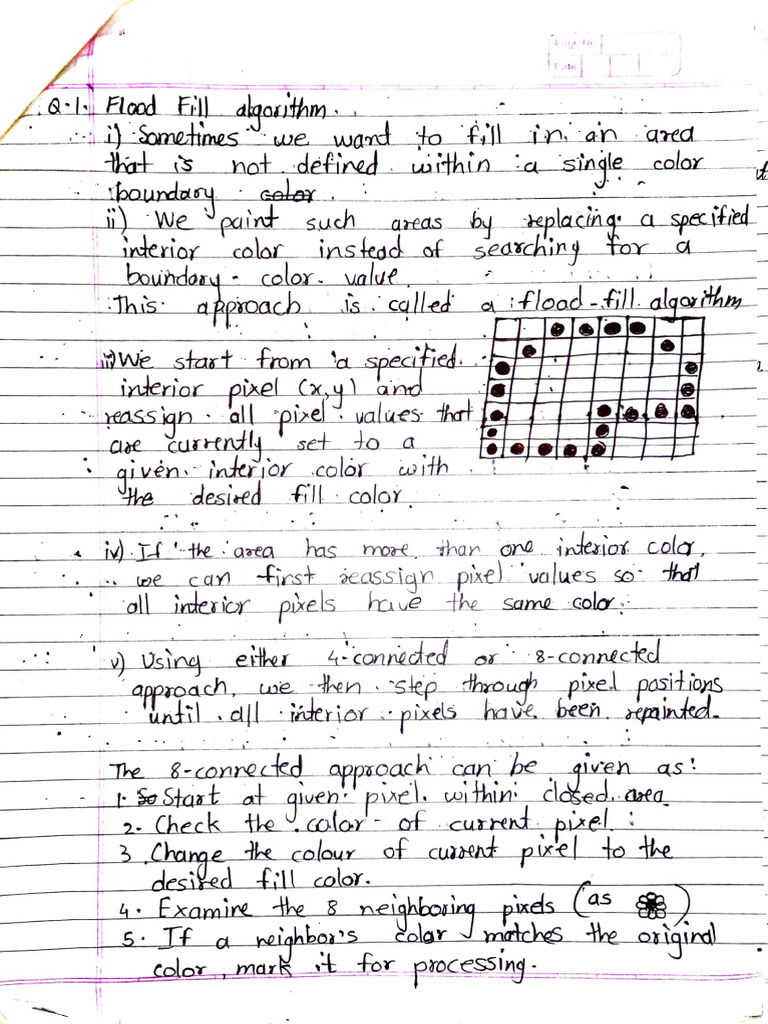 Page No.
Date
Q.1. Flood Fill algorithm.
i) Sometimes we want to fill in an area
that is not defined within a single color
boundary color.
ii) We paint such areas by replacing a specified
interior color instead of searching for a
boundary color value.
This approach is called a flood-fill algorithm
iii) We start from a specified
interior pixel (x,y) and
reassign all pixel values that
are currently set to a
given interior color with
the desired fill color.
iv) If the area has more than one interior color,
we can first reassign pixel values so that
all interior pixels have the same color.
v) Using either 4-connected or 8-connected
approach, we then step through pixel positions
until all interior pixels have been repainted.
The 8-connected approach can be given as:
1. So Start at given pixel within closed area
2. Check the color of current pixel.
3. Change the colour of current pixel to the
desired fill color.
4. Examine the 8 neighboring pixels (as )
5. If a neighbor's color matches the original
color, mark it for processing.